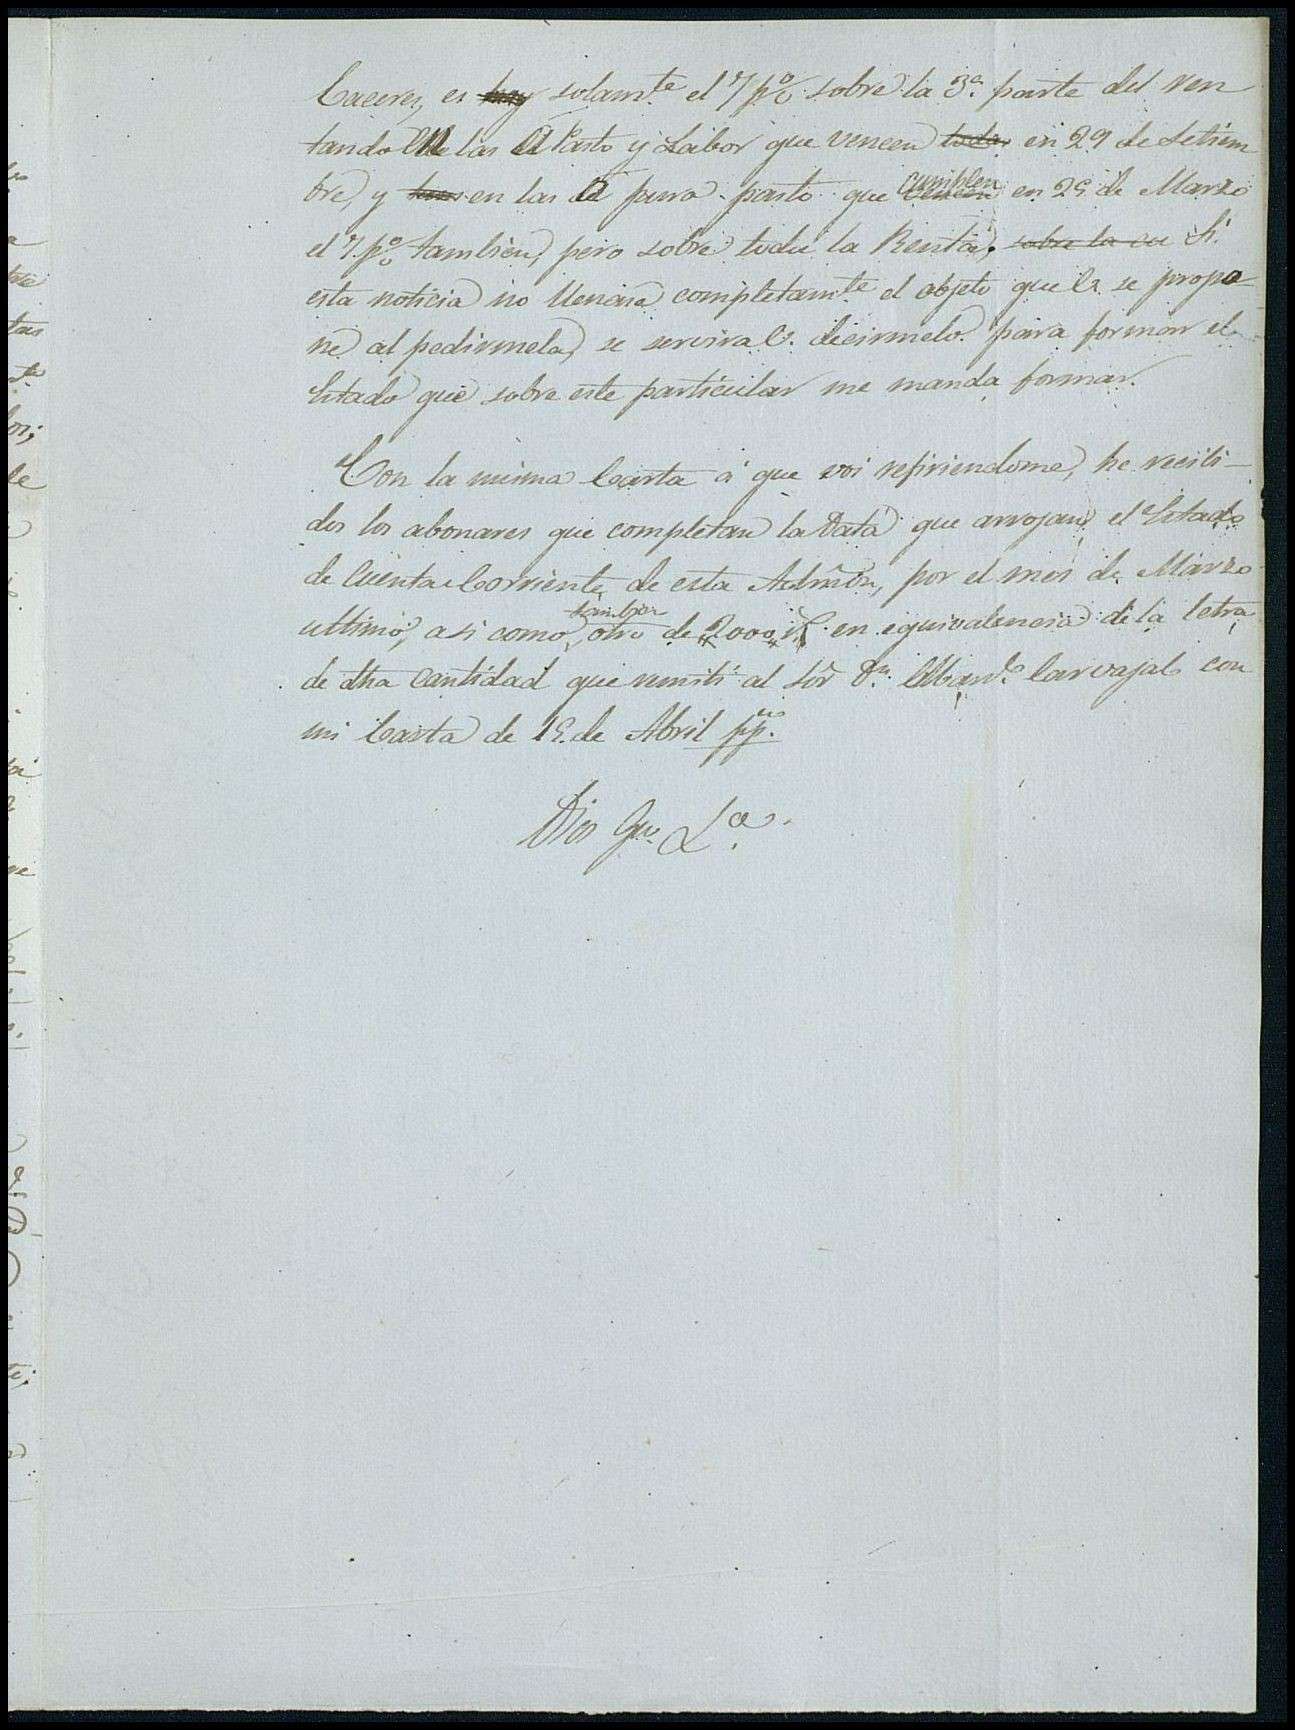 Caceres, es hoy solamte. el 7 p% sobre la 3ª. parte del ren
tando en las a Pasto y Labor que vencen todas en 29 de Setiem
bre, y en las a puro pasto que cumplen vencen en 25 de Marzo
el 7 p% tambien, pero sobre toda la Renta; sobre la cu Si
esta noticia no llenase completamte. el objeto que V. se propo-
ne al pedirmela, se servira V. decirmelo para formar el
Estado que sobre este particular me manda formar.
Con la misma Carta á que voi refiriendome, he recibi-
dos los abonares que completan la Data que arrojan el Estado
de Cuenta Corriente de esta Admon, por el mes de Marzo
ultimo, asi como tambien otro de 2000 en equivalencia de la letra
de dha cantidad que remiti al Sor Dn. Carvajal con
mi Carta de 15. de Abril pp.
Dios Gue.